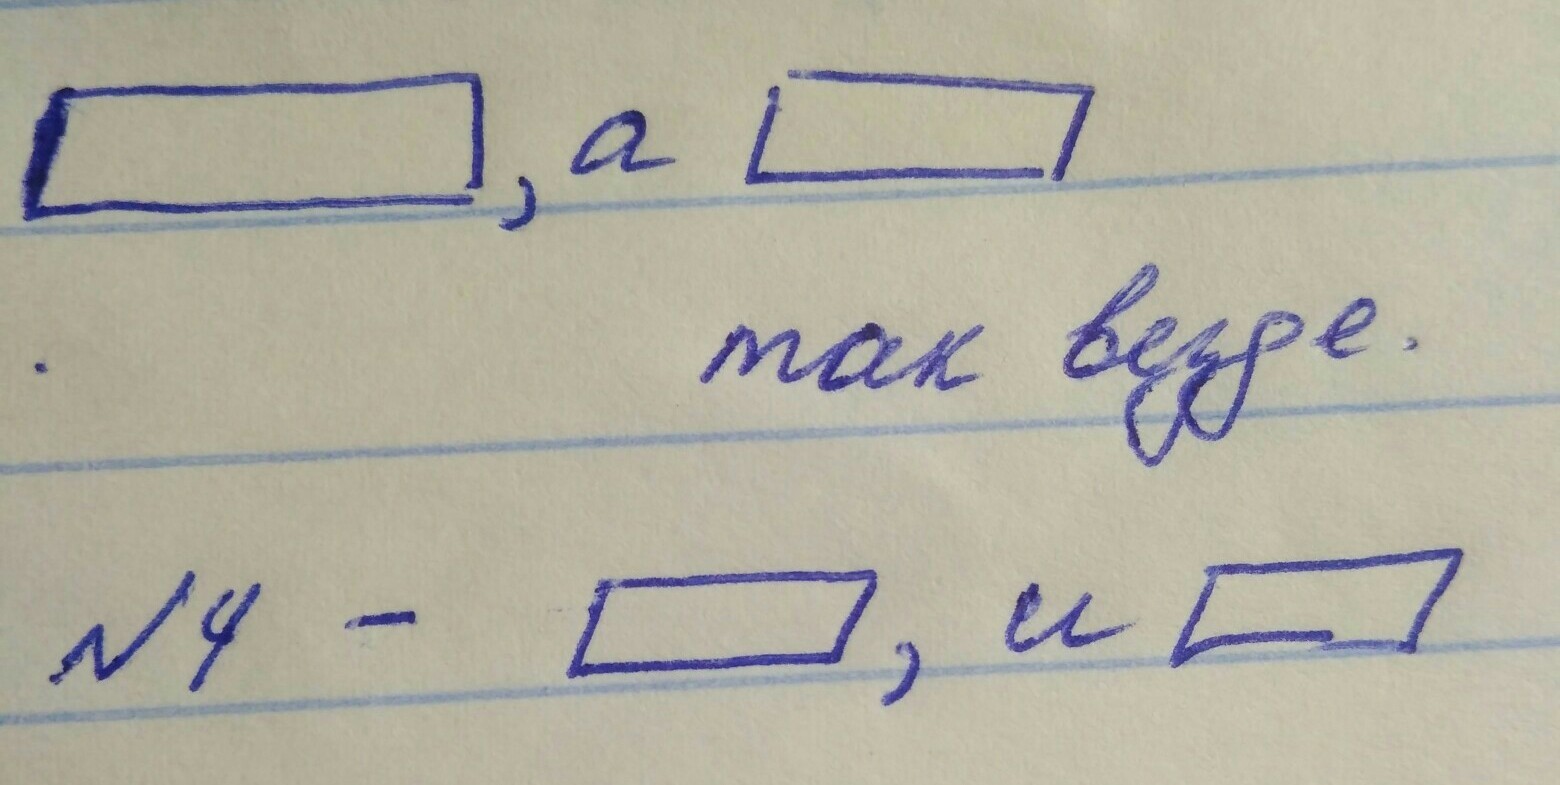 , а
так везде.
№4 - , и